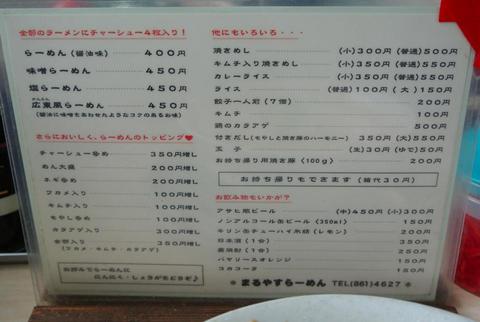 全部のラーメンにチャーシュー4枚入り!
らーめん(醤油味) 400円
味噌らーめん 450円
塩らーめん 450円
かんとん
広東風らーめん 450円
(醤油に味噌をあわせたようなコクのあるお味)
さらにおいしく、らーめんのトッピング♥
チャーシュー多め 350円増し
めん大盛 200円増し
ネギ多め 200円増し
ワカメ入り 100円増し
キムチ入り 100円増し
もやし多め 100円増し
カラアゲ入り 300円増し
全部入り 360円増し
(ワカメ・キムチ・カラアゲ)
お好みでらーめんに
にんにく・しょうがをどうぞ♪
他にもいろいろ・・・
焼きめし (小)300円(普通)500円
キムチ入り焼きめし (小)350円(普通)550円
カレーライス (小)350円(普通)550円
ライス (普通)100円(大)150円
餃子一人前(7個) 200円
キムチ 100円
鶏のカラアゲ 500円
付きだし(もやしと焼き豚のハーモニー) (小)350円(大)550円
玉子 (生)30円(ゆで)50円
お持ち帰り用焼き豚(100g) 200円
お持ち帰りもできます(箱代30円)
お飲み物もいかが?
アサヒ瓶ビール (中)450円(小)300円
ノンアルコール缶ビール(350ml) 150円
キリン缶チューハイ氷結(レモン) 200円
日本酒(1合) 350円
焼酎(1合) 250円
バヤリースオレンジ 150円
コカコーラ 150円
まるやすらーめん TEL(861)4627